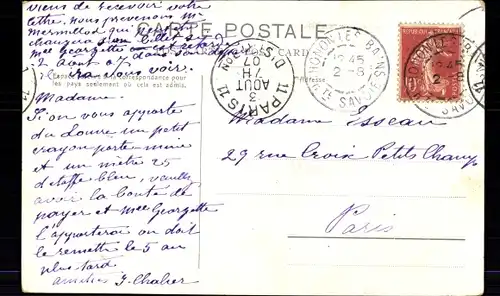 viens de recevoir votre
lettre. Nous prevenons Mr
Mermillod qui
changera son billet
Mee Georgette
2 Aout 07
Au revoir.
CARTE POSTALE
CARD
Correspondance pour
les pays seulement où cela est admis.
Adresse
Madame
Si on vous apporte
du Louvre un petit
crayon porte mine
et un mètre 25
d'étoffe bleu, veuillez
avoir la bonté de
payer et Mee Georgette
l'apportera on doit
le remettre le 5 au
plus tard
amitiés J. Chalier
PARIS 11 DIST
7H
3 AOUT
07
THONON LES BAINS
12 45
2 - 8
Hte SAVOIE
REPUBLIQUE FRANÇAISE
10
12 45
2 - 8
SAVOIE
Madame Esseau
29 rue Croix Petits Champs
Paris